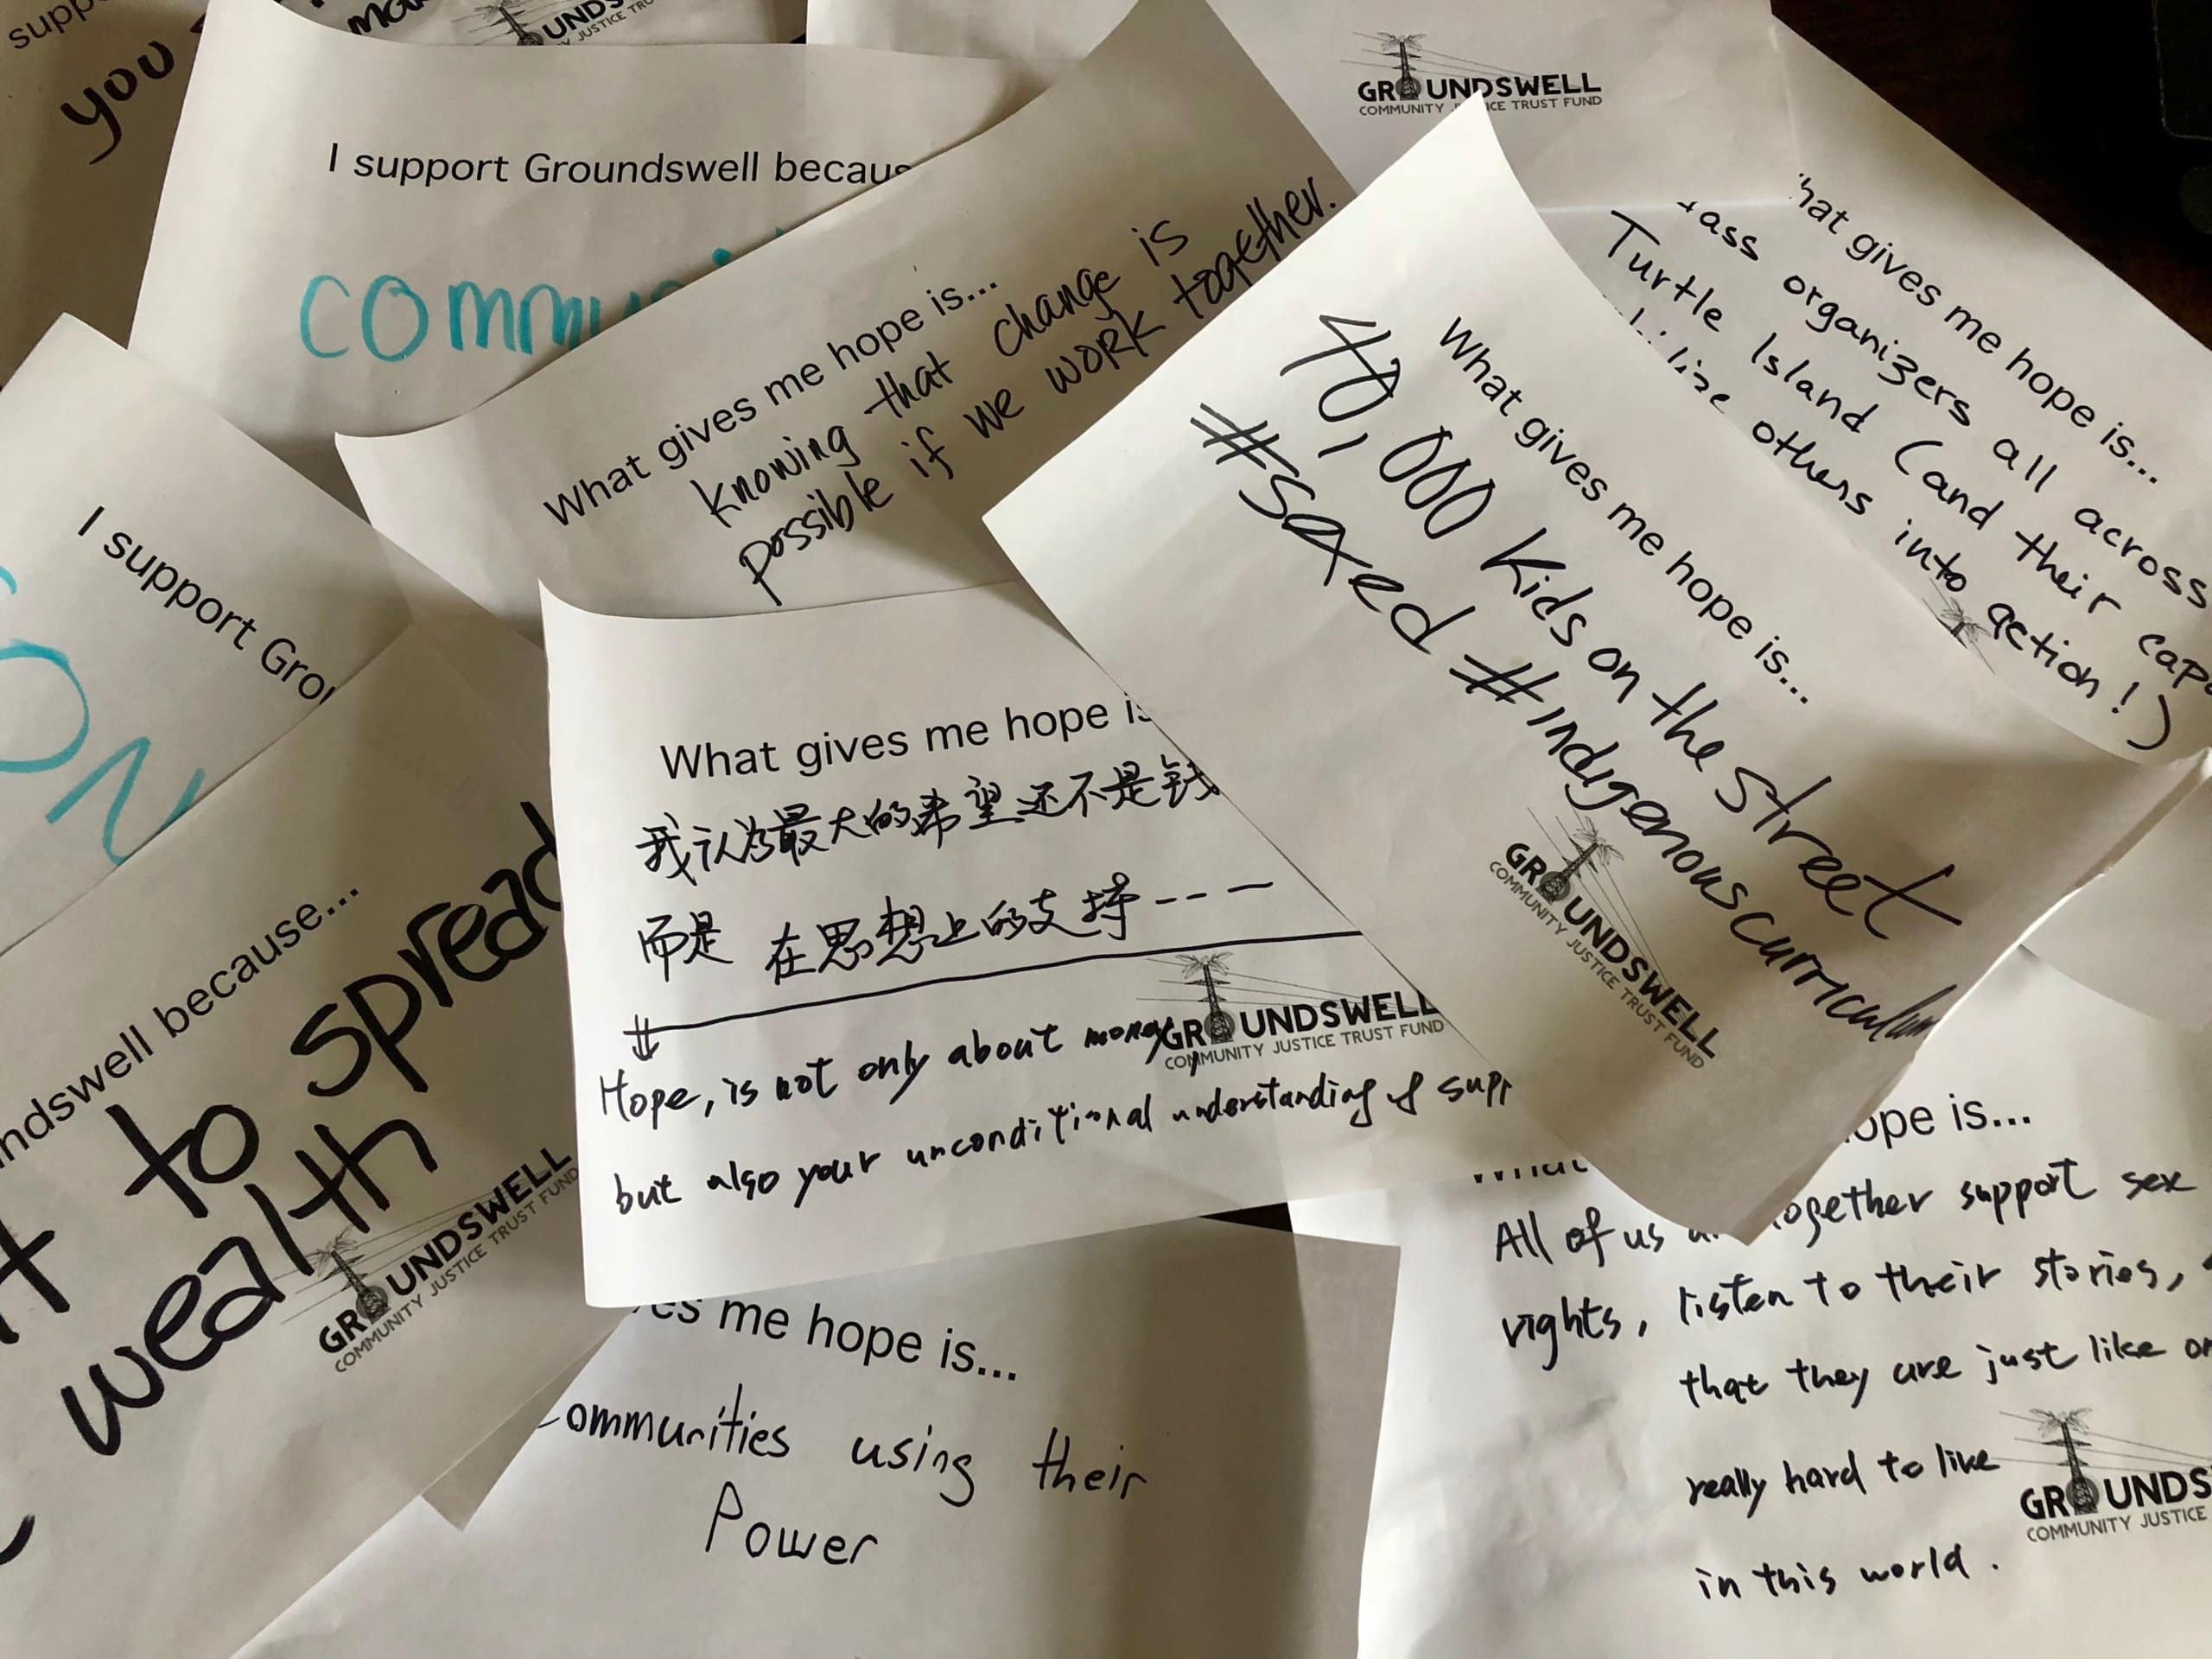 you
UNDS
JUSTICE TRU
I support Groundswell
GROUNDSWELL
COMMUNITY JUSTICE TRUST FUND
What gives me hope is...
knowing that change is
possible if we work together.
hat gives me hope is...
organizers all across
Turtle Island (and their
others into action!)
What gives me hope is...
40,000 kids on the street
#sexed #indigenouscurriculum
GROUNDSWELL
COMMUNITY JUSTICE TRUST FUND
I support
ON
because...
to spread
wealth
GROUNDSWELL
COMMUNITY JUSTICE TRUST FUND
What gives me hope
我认为最大的希望还不是钱
而是 在思想上的支持---—
Hope, is not only about money
but also your unconditional understanding of
GROUNDSWELL
COMMUNITY JUSTICE TRUST FUND
me hope is...
communities using their
Power
is...
All of us together support sex
rights, listen to their stories,
that they are just like
really hard to live
in this world.
GROUNDS
COMMUNITY JUSTICE